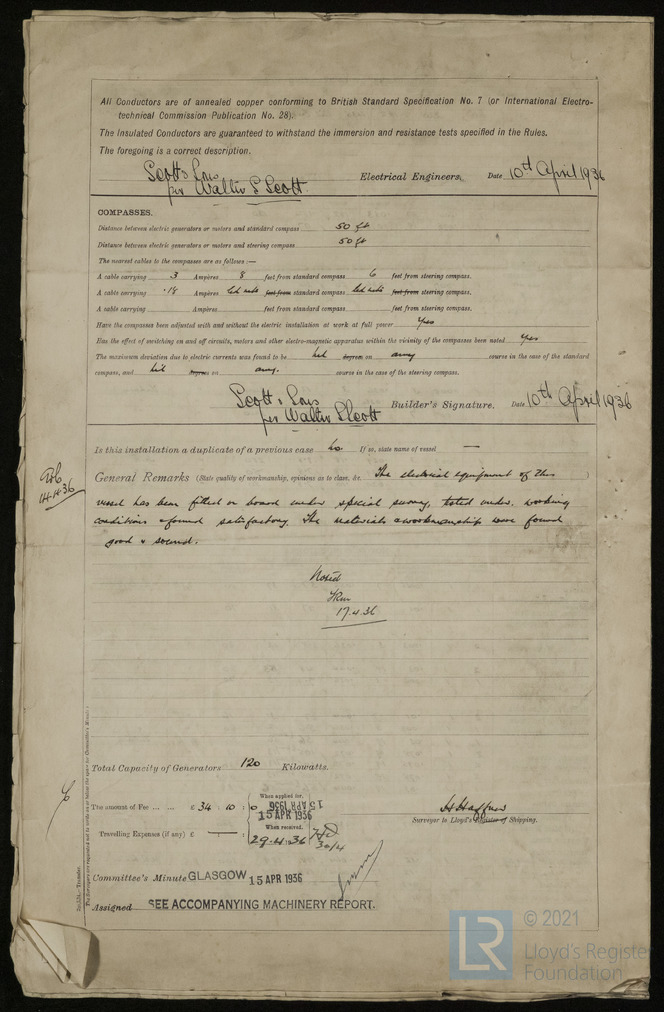 All Conductors are of annealed copper conforming to British Standard Specification No. 7 (or International Electro-
technical Commission Publication No. 28).
The Insulated Conductors are guaranteed to withstand the immersion and resistance tests specified in the Rules.
The foregoing is a correct description.
Scotts Sons
per Walter S Scott Electrical Engineers. Date 10th April 1936
COMPASSES.
Distance between electric generators or motors and standard compass 50 ft
Distance between electric generators or motors and steering compass 50 ft
The nearest cables to the compasses are as follows :—
A cable carrying 3 Ampères 8 feet from standard compass 6 feet from steering compass.
A cable carrying .18 Ampères led into feet from standard compass led into feet from steering compass.
A cable carrying Ampères feet from standard compass feet from steering compass.
Have the compasses been adjusted with and without the electric installation at work at full power Yes
Has the effect of switching on and off circuits, motors and other electro-magnetic apparatus within the vicinity of the compasses been noted Yes
The maximum deviation due to electric currents was found to be nil degrees on any course in the case of the standard
compass, and nil degrees on any. course in the case of the steering compass.
Scott & Sons
per Walter S Scott Builder's Signature. Date 10th April 1936
Is this installation a duplicate of a previous case no. If so, state name of vessel —
General Remarks (State quality of workmanship, opinions as to class, &c. The electrical equipment of this
14.4.36
vessel has been fitted on board under special survey, tested under working
conditions & found satisfactory. The materials & workmanship were found
good & sound.
Noted
17.4.36
Total Capacity of Generators 120 Kilowatts.
The amount of Fee ... ... £ 34 : 10 : 0
When applied for,
15 APR 1936
15 APR 1936
When received,
29.4.36
30/4
Travelling Expenses (if any) £ — :
Surveyor to Lloyd's Register of Shipping.
Committee's Minute GLASGOW 15 APR 1936
Assigned SEE ACCOMPANYING MACHINERY REPORT.
LR
© 2021
Lloyd's Register
Foundation